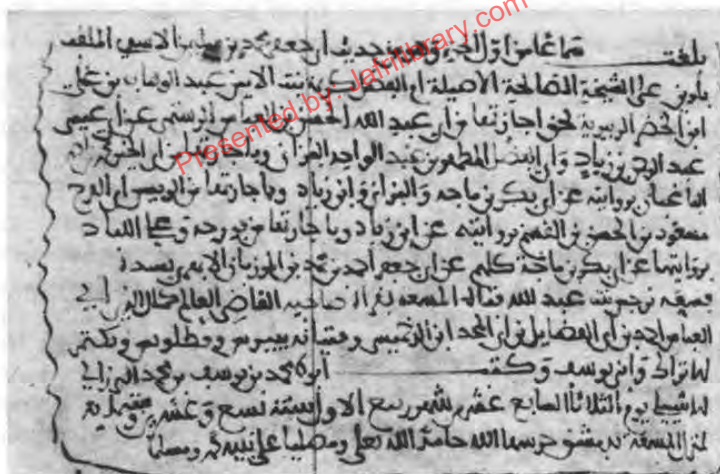 بلغت سماعا من اول الجزء وهو من حديث ابي جعفر محمد بن سليمن الاسدي الملقب
بلوين على الشيخة الصالحة الاصيلة ام الفضل كريمة بنت الامين عبد الوهاب بن علي
ابن الخضر الزبيرية بحق اجازتها من ابي عبد الله الحسن بن العباس الرستمي عن ابي عيسى
عبد الرحمن بن زياد وابي الفضل المطهر بن عبد الواحد البزاني وباجازتها من ابي الخير محمد
الباغبان بروايته عن ابي بكر بن ماجه والبزاني وابن زياد وباجازتها من الرييس ابي الفرج
مسعود بن الحسن بن القسم بروايته عن ابن زياد وباجازتها من
بروايتهما عن ابي بكر بن ماجة كلهم عن ابي جعفر احمد بن محمد بن المرزبان الابهري بسنده
عبد الله فتاه المسمعه بقراة صاحبه القاضي العالم كمال الدين ابي
العباس احمد بن ابي الفضايل بن ابي المجد ابن الدخميسي وفتيانه بيبرس و
وابن يوسف وكتب محمد بن يوسف بن محمد البرزالي
الاشبيلي يوم الثلاثا السابع عشر من شهر ربيع الاول سنة تسع وعشرين وستماية
بمنزل المسمعة بدمشق حرسها الله حامدا لله تعلى ومصليا على نبيه محمد ومسلما
Presented by: Jafrilibrary.com